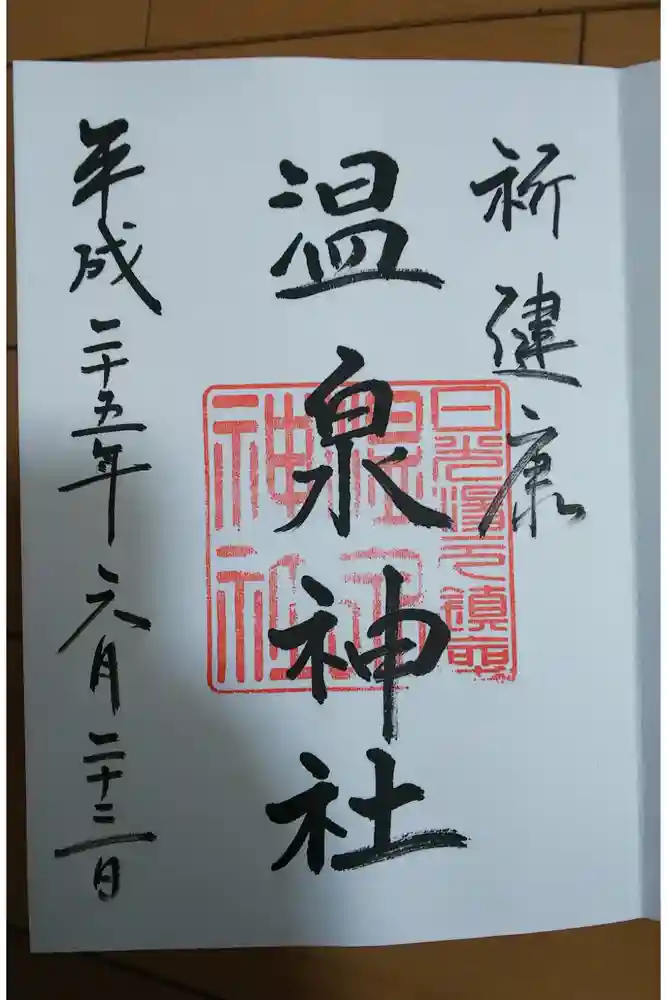 祈健康
温泉神社
日光湯元鎮座
温泉
神社
平成二十五年六月二十三日